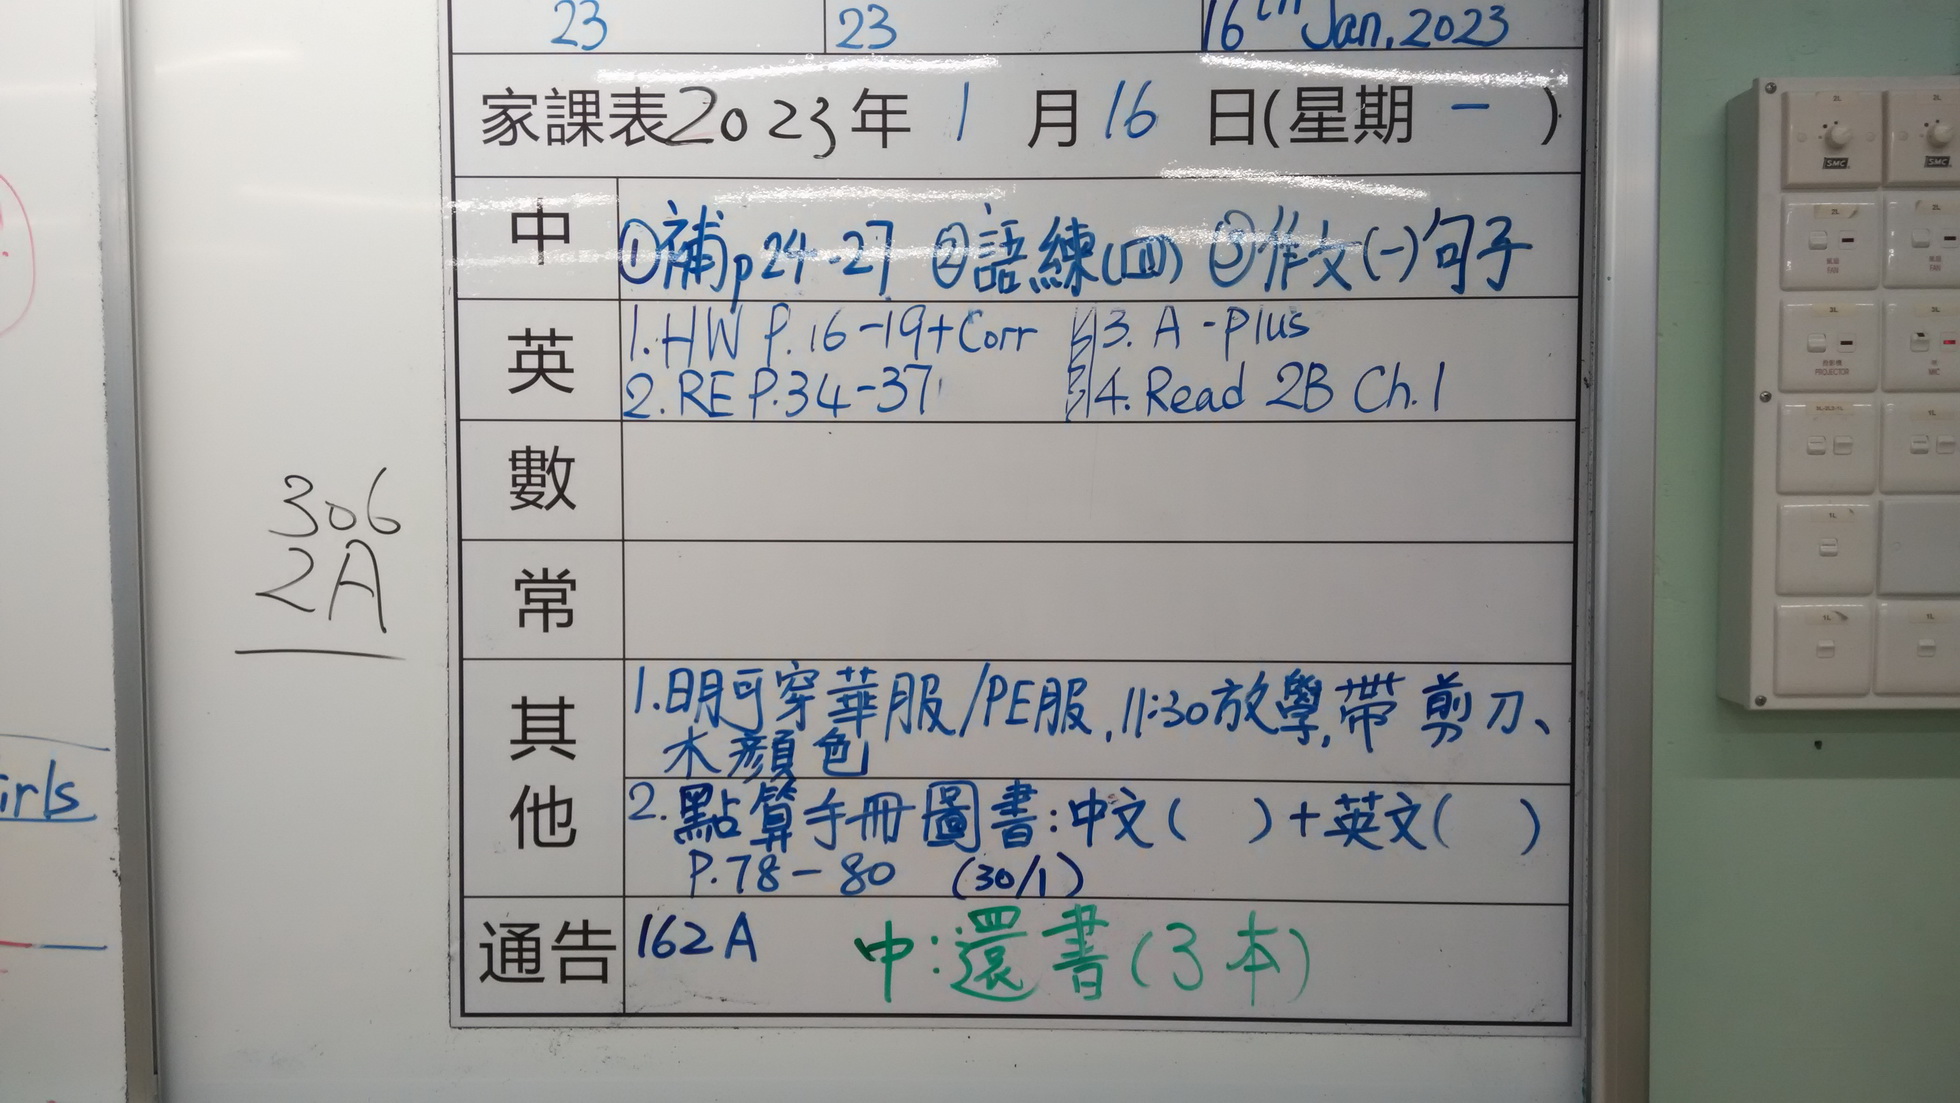 23 23 16th Jan, 2023
家課表2023年 1 月 16 日(星期 一 )
中 ①補p24-27 ②語練(四) ③作文(一)句子
英 1. HW P. 16-19+Corr 3. A-Plus
2. RE P.34-37 4. Read 2B Ch.1
數
常
其他 1.明可穿華服/PE服, 11:30放學,帶剪刀、
木顏色
2. 點算手冊圖書:中文( )+英文( )
P.78-80 (30/1)
通告 162A 中:還書(3本)
306
2A
irls
SMC
SMC
PROJECTOR
MIC